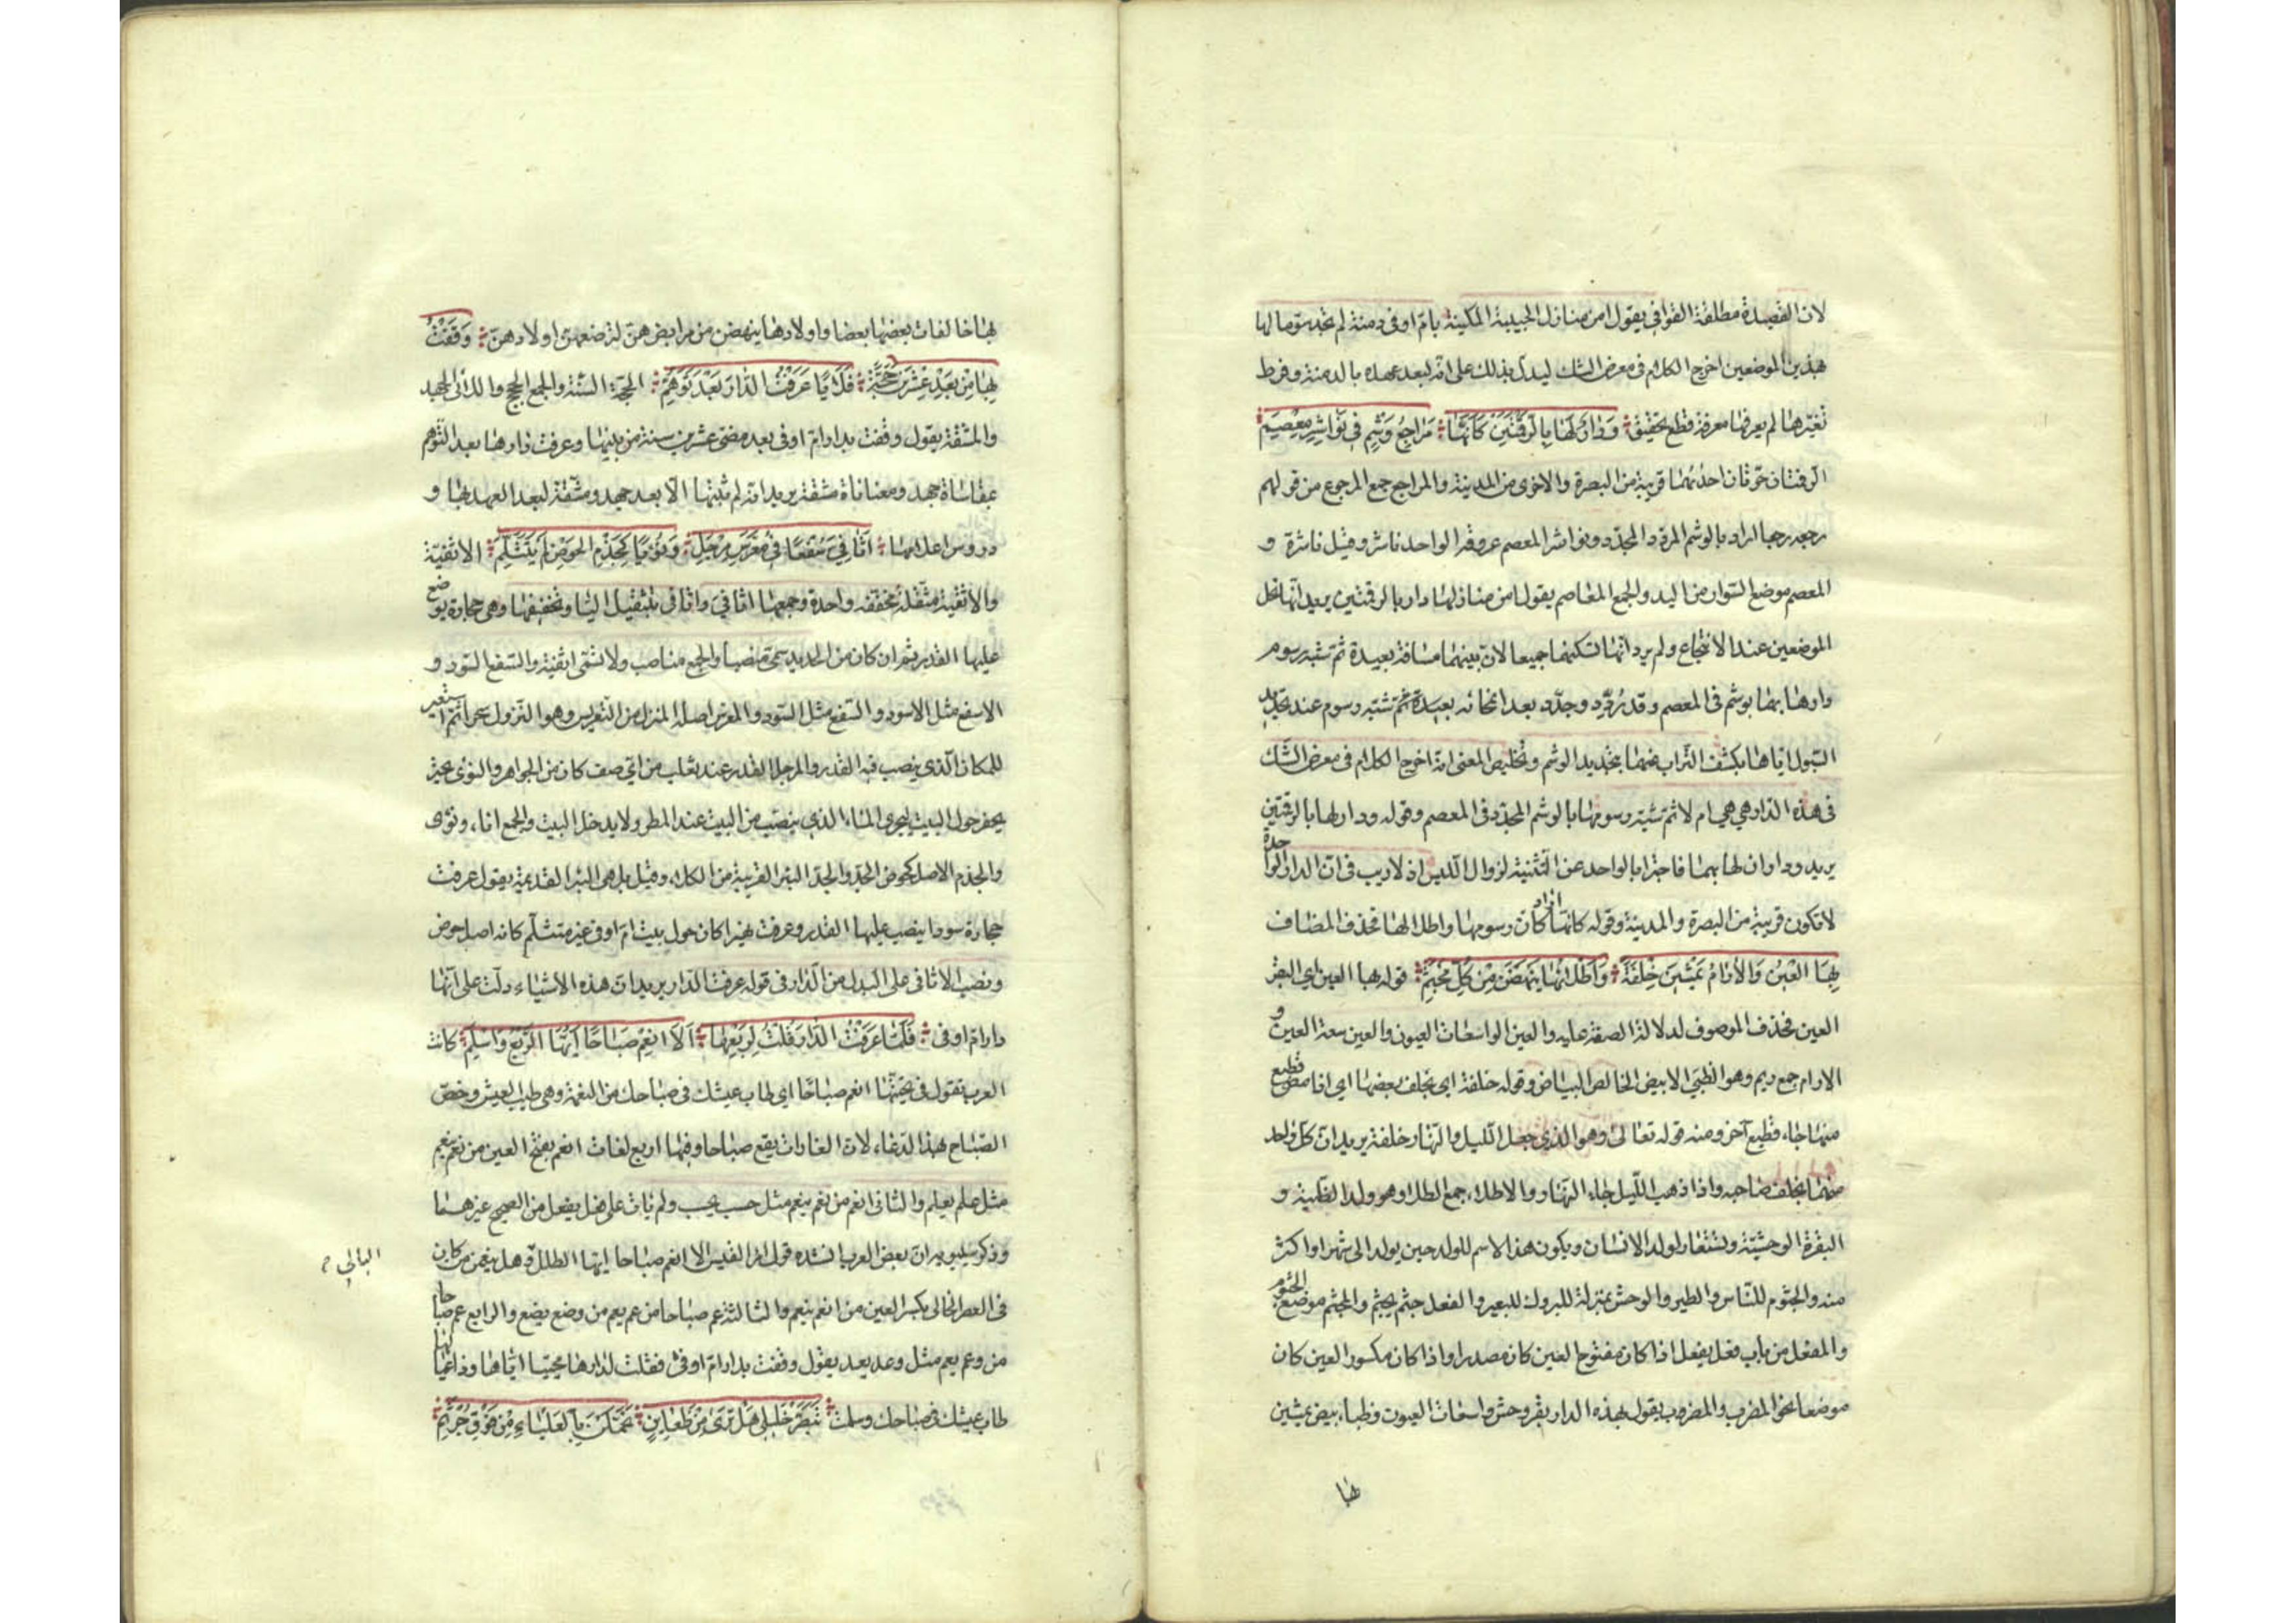 لان القصيدة مطلقة القوافي يقول امن منازل الحبيبة المكينة بام اوفى دمنة لم تجب سؤمالها
هذين الموضعين اخرج الكلام فى معرض الشك ليدل بذلك على انه لبعد عهده بالدمنة وفرط
تغيرها لم يعرفها معرفة قطع وتحقيق وَدَارٌ لَهَا بِالرَّقْمَتَيْنِ كَاَنَّهَا مَرَاجِعُ وَشْمٍ فِى نَوَاشِرِ مِعْصَمِ
الرقمتان حرّتان احدٰيهما قريبة من البصرة والاخرى من المدينة والمراجع جمع المرجوع من قولهم
رجعه رجعا اراد بالوشم المردد المجدّد ونواشر المعصم عروقه الواحد ناشر وقيل ناشرة و
المعصم موضع السّوار من اليد والجمع المعاصم يقول امن منازلها دار بالرقمتين يريد انّها تحل
الموضعين عند الانتجاع ولم يرد انّها تسكنهما جميعا لانّ بينهما مسافة بعيدة ثم شبّه رسوم
دارها بهما بوشم فى المعصم وقد رُدِّد وجدّد بعد انمحائه بعيدة ثم شبّه رسوم عند تجديد
السّيول ايّاها بكشف التّراب عنها بتجديد الوشم وتخليص المعنى انه اخرج الكلام فى معرض الشّك
فى هذه الدار هي هي ام لا ثم شبّه رسومها بالوشم المجدّد فى المعصم وقوله ودار لها بالرقمتين
يريد وداران لها بهما فاجتزا بالواحد عن التّثنية لزوال اللبس اذ لا ريب فى ان الدار الواحدة
لا تكون قريبة من البصرة والمدينة وقوله كانها اراد كانّ رسومها واطلالها فحذف المضاف
بِهَا الْعِيْنُ وَالْاَرَامُ يَمْشِيْنَ خِلْفَةً وَاَطْلَائُهَا يَنْهَضْنَ مِنْ كُلِّ مَجْثَمِ قوله بها العين اي البقر
العين فحذف الموصوف لدلالة الصفة عليه والعين الواسعات العيون والعين سعة العين و
الارام جمع ريم وهو الظبي الابيض الخالص البياض وقوله خلفة اى يخلف بعضها اي اذا مضى قطيع
منها جاء قطيع آخر ومنه قوله تعالى وهو الذي جعل الّليل والنّهار خلفة يريد انّ كلّ واحد
منهما يخلف صاحبه واذا ذهب اللّيل جاء النّهار والاطلاء جمع الطلا وهو ولد الظّبية و
البقرة الوحشيّة ويستعار لولد الانسان ويكون هذا الاسم للولد حين يولد الى شهر او اكثر
منه والجثوم للنّاس والطير والوحش بمنزلة للبروك للبعير والفعل جثم يجثم والمجثم موضع الجثوم
والمفعل من باب فعل يفعل اذا كان مفتوح العين كان مصدرا واذا كان مكسور العين كان
موضعا نحو المضرب والمضرب يقول بهذه الدار بقر وحش واسعات العيون وظباء بيض يمشين
بها
بها خالفات بعضها بعضا واولادها ينهضن من مرابضهنّ لترضعهنّ اولادهنّ وَقَفْتُ
بِهَا مِنْ بَعْدِ عِشْرِيْنَ حِجَّةً فَلَأْيًا عَرَفْتُ الدَّارَ بَعْدَ تَوَهُّمِ الحجّة السّنة والجمع الحجج واللأى الجهد
والمشقة يقول وقفت بدار امّ اوفى بعد مضى عشرين سنة من بينها وعرفت دارها بعد التّوهم
بمقاساة جهد ومعاناة مشقة يريد انه لم يثبتها الّا بعد جهد ومشقّة لبعد العهد بها و
دروس اعلامها اَثَافِيَّ سُفْعًا فِى مُعَرَّسِ مِرْجَلٍ وَنُؤْيًا كَجِذْمِ الحَوْضِ لَمْ يَتَثَلَّمِ الاثفيّة
والاثفية مثقّلة مخففة واحدة وجمعها اثافيّ واثافى بتثقيل اليا وتخفيفها وهى حجارة يوضع
عليها القدر ثم ان كان من الحديد سمّى منصبا والجمع مناصب ولا تسمّى اثفية والسّفع السّود و
الاسفع مثل الاسود والسّفع مثل السّود والمعرّس اصله المنزل من التّعريس وهو النّزول سحرا ثمّ استعير
للمكان الّذى ينصب فيه القدر والمرجل القدر عند ثعلب من ايّ صنف كان من الجواهر والنوى نهير
يحفر حول البيت ليجرى الماء الذي ينصبّ من البيت عند المطر ولا يدخل البيت والجمع اناء ونؤى
والجذم الاصل كحوض الجدّ والجدّ البئر القريبة من الكلاء وقيل بل هى البئر القديمة يقول عرفت
حجارة سودا ينصب عليها القدر وعرفت نهيرا كان حول بيت امّ اوفى غير متثلّم كانه اصل حوض
ونصب الاثافى على البدل من الدّار فى قوله عرفت الدّار يريد ان هذه الاشياء دلّت على انّها
دار امّ اوفى فَلَمَّا عَرَفْتُ الدَّارَ قُلْتُ لِرَبْعِهَا اَلَا انْعِمْ صَبَاحًا اَيُّهَا الرَّبْعُ وَاسْلَمِ كانت
العرب تقول فى تحيّتها انعم صباحًا اي طاب عيشك فى صباحك من النعمة وهى طيب العيش وخصّ
الصّباح بهذا الدّعاء لان الغارات يقع صباحا وفيها اربع لغات انعم بفتح العين من نعم ينعم
مثل علم يعلم والثانى انعم من نعم ينعم مثل حسب يحسب ولم يات على فعل يفعل من الصحيح غيرهما
وذكر سيبويه انّ بعض العرب انشده قول امرا القيس الا انعم صباحا ايّها الطلل وهل ينعمن من كان
البالي
فى العصر الخالى بكسر العين من انعم ينعم والثالثة عم صباحا من عم يعم من وضع يضع والرابع عم صباحا
من وعم يعم مثل وعد يعد يقول وقفت بدار امّ اوفى فقلت لدارها محيّيا ايّاها وداعيا لها
طاب عيشك فى صباحك وسلمت تَبَصَّرْ خَلِيلِى هَلْ تَرَى مِنْ ظَعَايِنٍ تَحَمَّلْنَ بِالْعَلْيَاءِ مِنْ فَوْقِ جُرْثُمِ